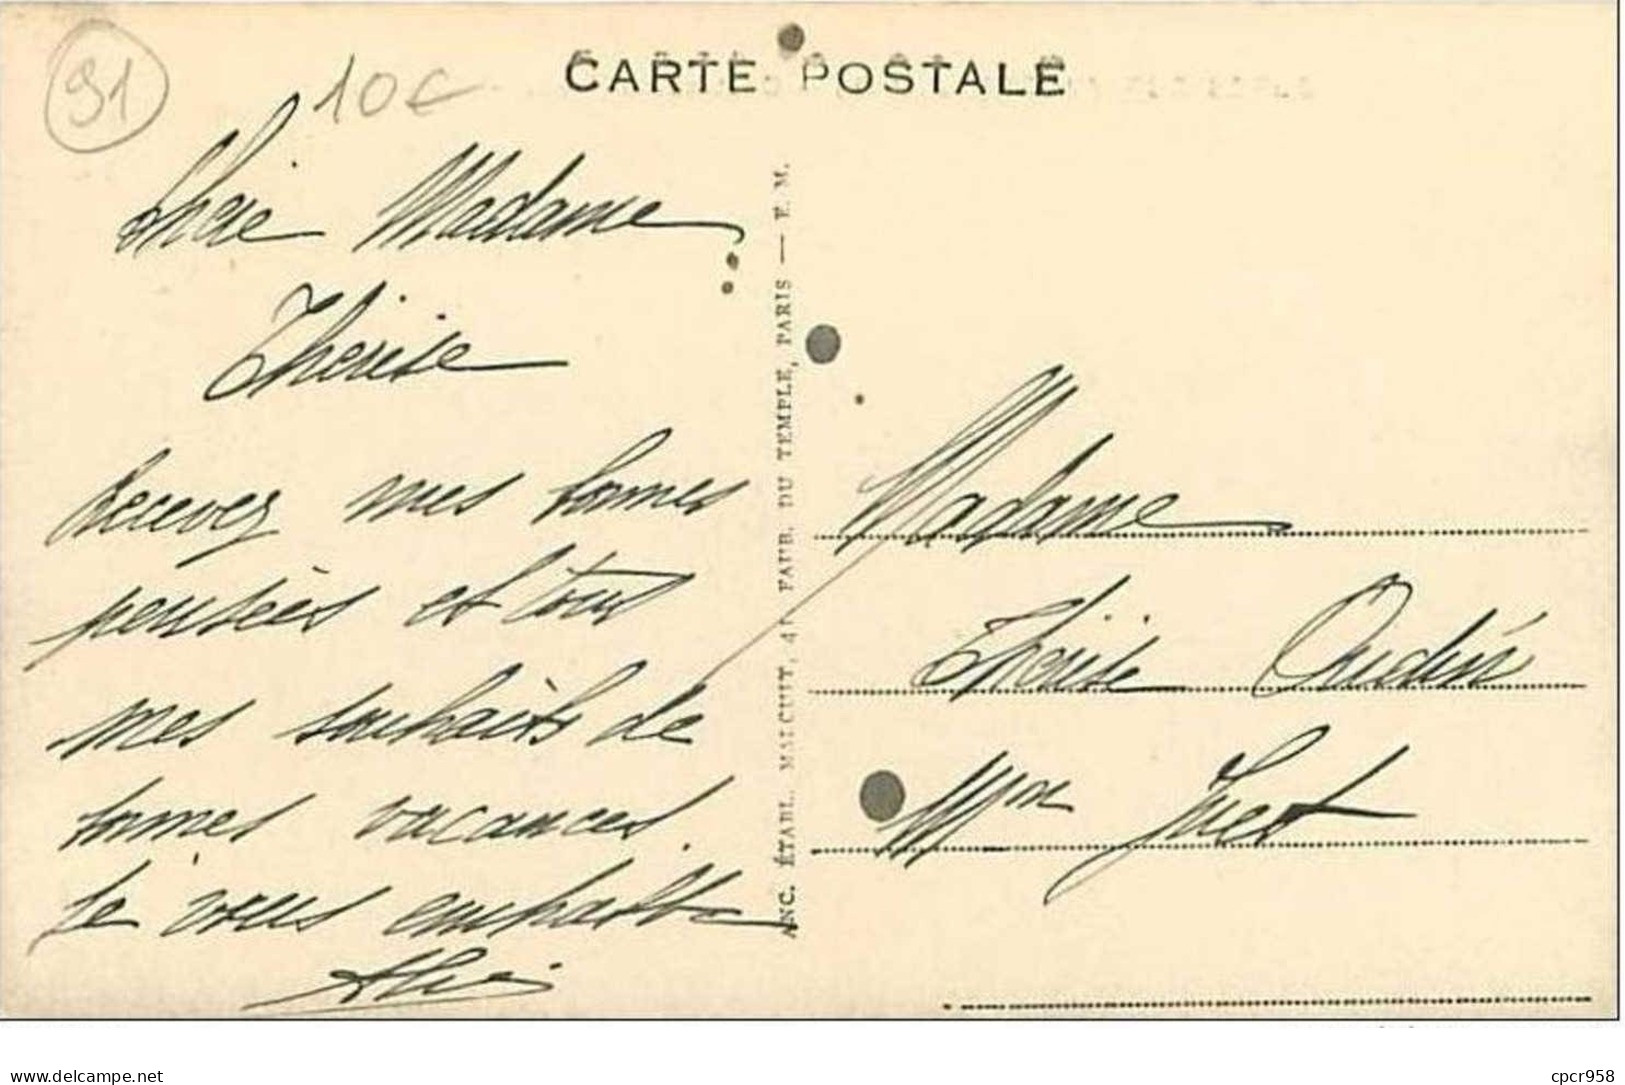 91
10€
CARTE POSTALE
Chère Madame
Thérèse
Recevez mes bonnes
pensées et tous
mes souhaits de
bonnes vacances.
Je vous embrasse
ANC. ÉTABL. MALCUIT, 41 FAUB. DU TEMPLE, PARIS — F. M.
Madame
Thérèse Oudin
Mon Juet
www.delcampe.net
cpcr958